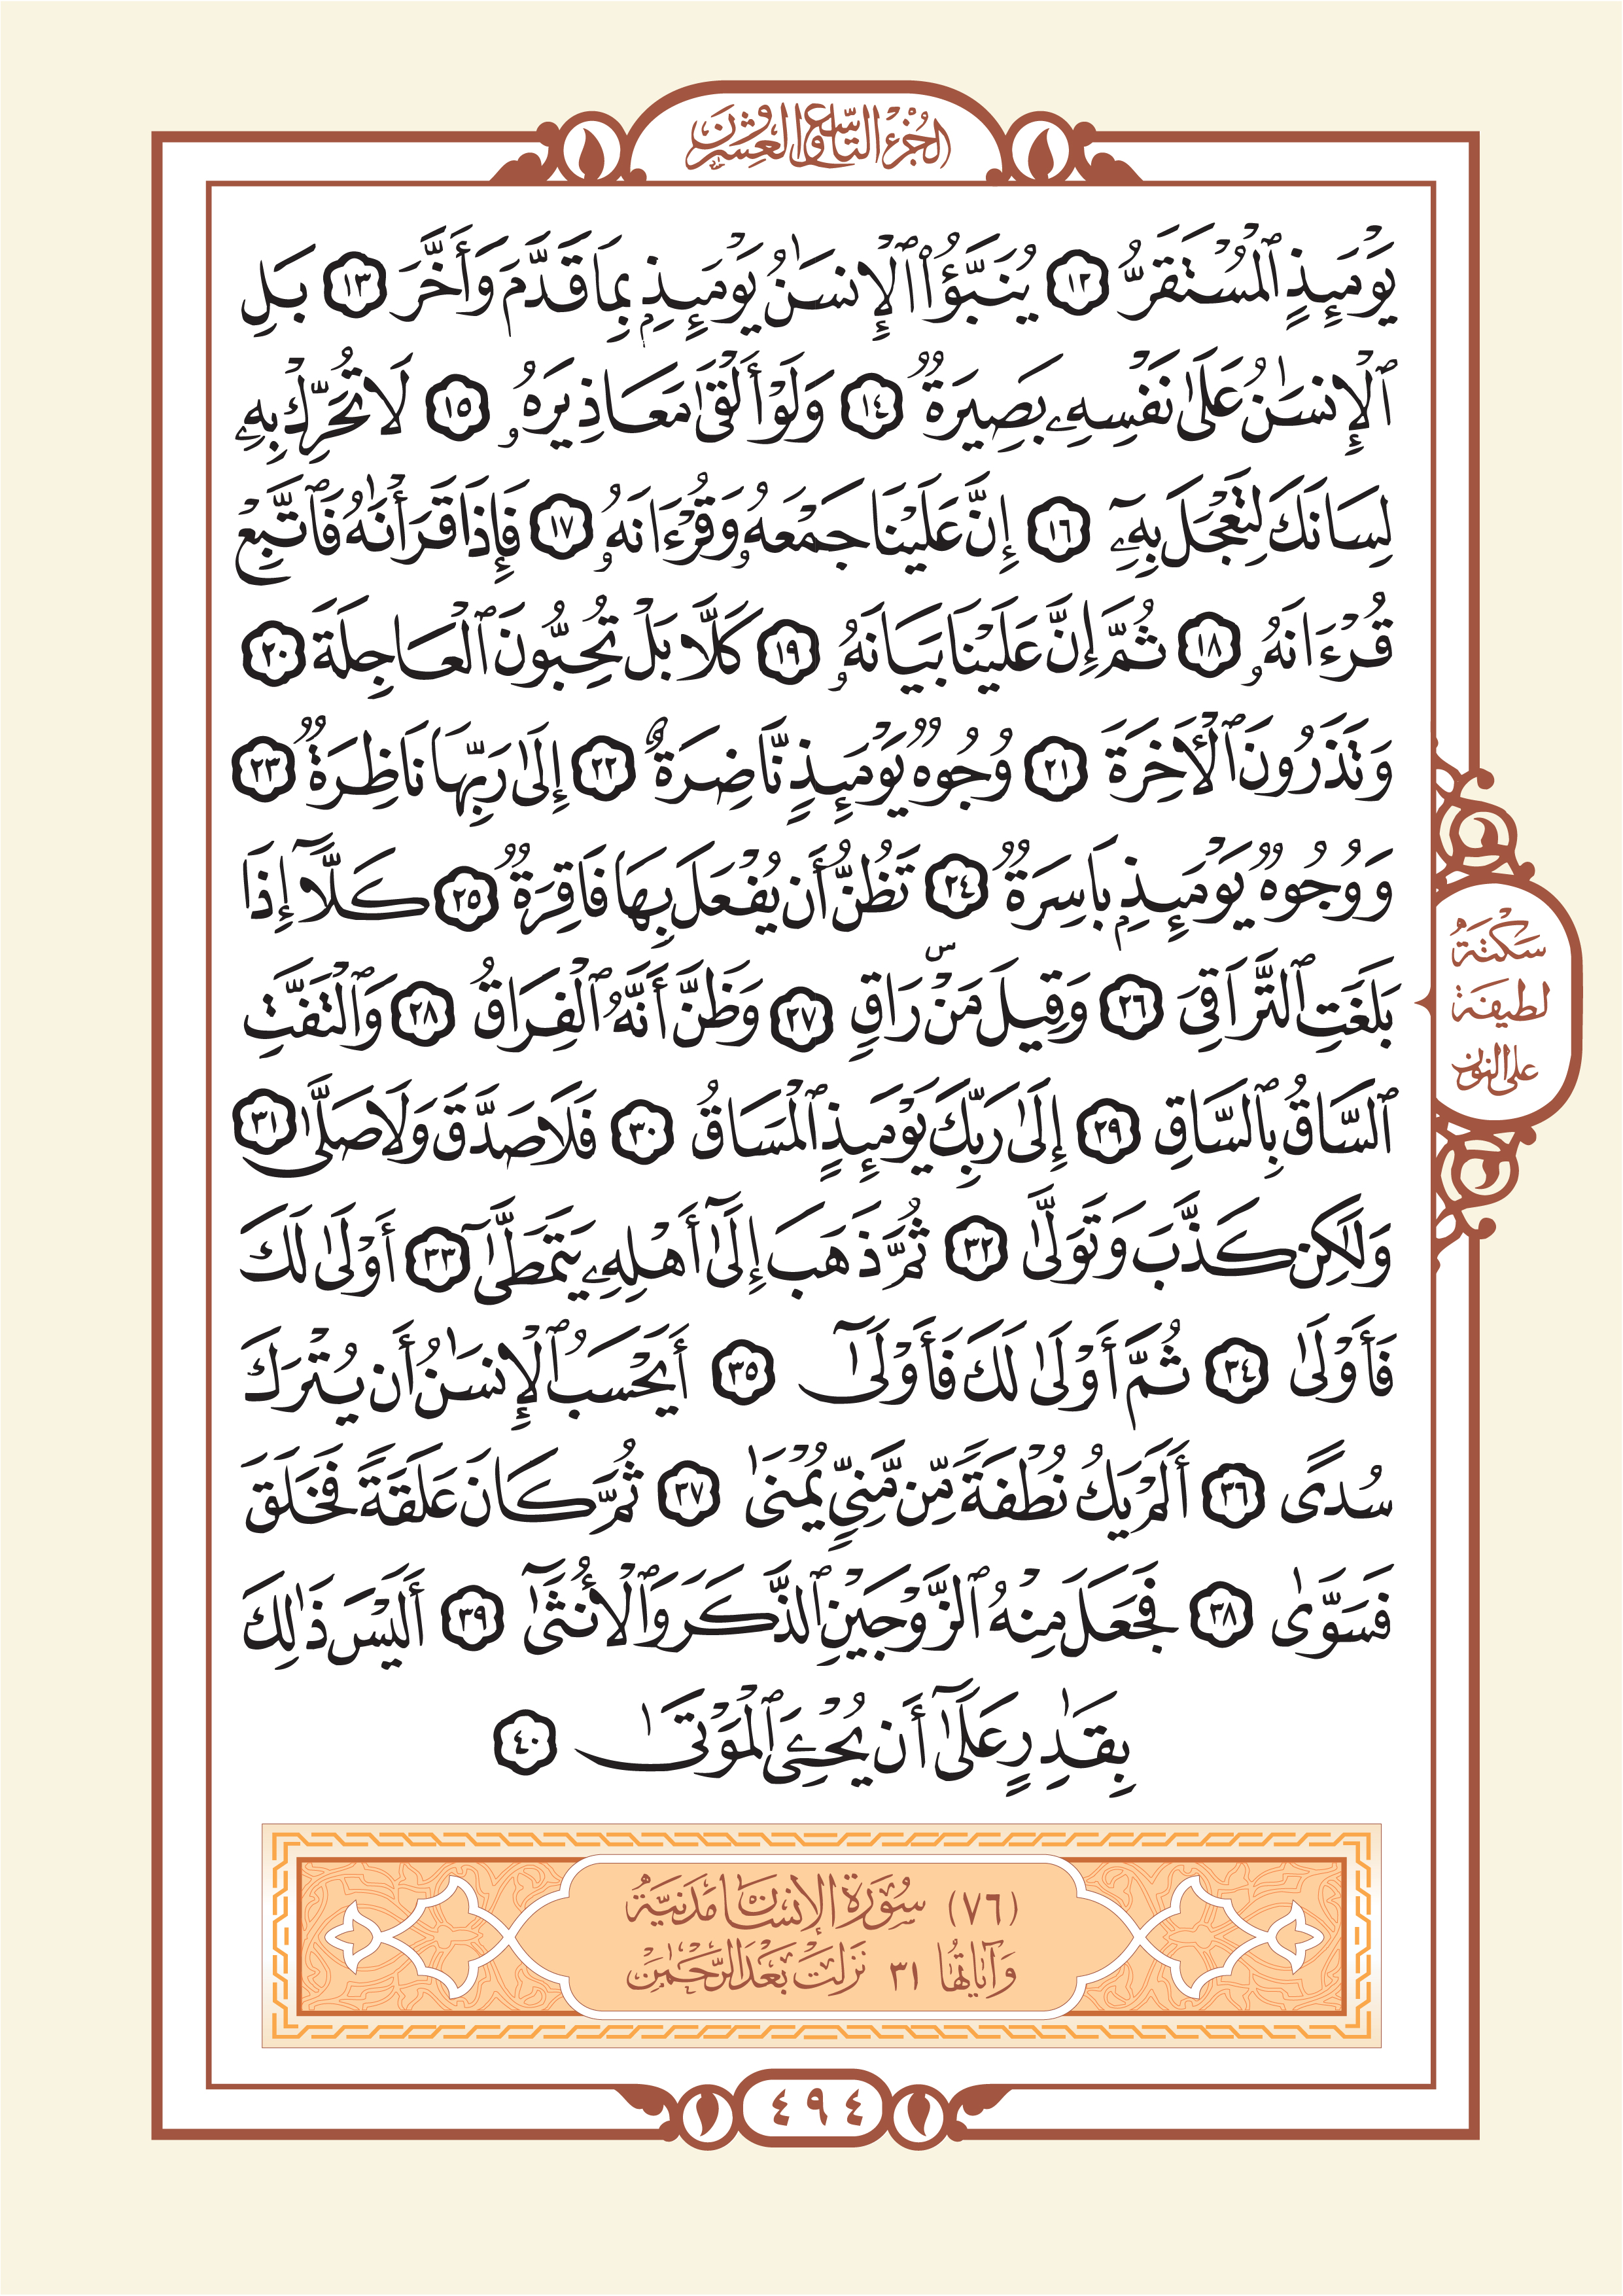 الجزء التاسع والعشرون
يَوْمَئِذٍ ٱلْمُسْتَقَرُّ ١٢ يُنَبَّؤُا۟ ٱلْإِنسَـٰنُ يَوْمَئِذِۭ بِمَا قَدَّمَ وَأَخَّرَ ١٣ بَلِ
ٱلْإِنسَـٰنُ عَلَىٰ نَفْسِهِۦ بَصِيرَةٌ ١٤ وَلَوْ أَلْقَىٰ مَعَاذِيرَهُۥ ١٥ لَا تُحَرِّكْ بِهِۦ
لِسَانَكَ لِتَعْجَلَ بِهِۦٓ ١٦ إِنَّ عَلَيْنَا جَمْعَهُۥ وَقُرْءَانَهُۥ ١٧ فَإِذَا قَرَأْنَـٰهُ فَٱتَّبِعْ
قُرْءَانَهُۥ ١٨ ثُمَّ إِنَّ عَلَيْنَا بَيَانَهُۥ ١٩ كَلَّا بَلْ تُحِبُّونَ ٱلْعَاجِلَةَ ٢٠
وَتَذَرُونَ ٱلْـَٔاخِرَةَ ٢١ وُجُوهٌ يَوْمَئِذٍ نَّاضِرَةٌ ٢٢ إِلَىٰ رَبِّهَا نَاظِرَةٌ ٢٣
وَوُجُوهٌ يَوْمَئِذِۭ بَاسِرَةٌ ٢٤ تَظُنُّ أَن يُفْعَلَ بِهَا فَاقِرَةٌ ٢٥ كَلَّآ إِذَا
بَلَغَتِ ٱلتَّرَاقِىَ ٢٦ وَقِيلَ مَنْ ۜ رَاقٍ ٢٧ وَظَنَّ أَنَّهُ ٱلْفِرَاقُ ٢٨ وَٱلْتَفَّتِ
ٱلسَّاقُ بِٱلسَّاقِ ٢٩ إِلَىٰ رَبِّكَ يَوْمَئِذٍ ٱلْمَسَاقُ ٣٠ فَلَا صَدَّقَ وَلَا صَلَّىٰ ٣١
وَلَـٰكِن كَذَّبَ وَتَوَلَّىٰ ٣٢ ثُمَّ ذَهَبَ إِلَىٰٓ أَهْلِهِۦ يَتَمَطَّىٰٓ ٣٣ أَوْلَىٰ لَكَ
فَأَوْلَىٰ ٣٤ ثُمَّ أَوْلَىٰ لَكَ فَأَوْلَىٰٓ ٣٥ أَيَحْسَبُ ٱلْإِنسَـٰنُ أَن يُتْرَكَ
سُدًى ٣٦ أَلَمْ يَكُ نُطْفَةً مِّن مَّنِىٍّ يُمْنَىٰ ٣٧ ثُمَّ كَانَ عَلَقَةً فَخَلَقَ
فَسَوَّىٰ ٣٨ فَجَعَلَ مِنْهُ ٱلزَّوْجَيْنِ ٱلذَّكَرَ وَٱلْأُنثَىٰٓ ٣٩ أَلَيْسَ ذَٰلِكَ
بِقَـٰدِرٍ عَلَىٰٓ أَن يُحْـِۧىَ ٱلْمَوْتَىٰ ٤٠
سَكْتَةٌ
لطيفَة
على النون
(٧٦) سُورَةُ الإِنسَان مَدَنِيَّةٌ
وَآيَاتُهَا ٣١ نَزَلَتْ بَعْدَ الرَّحْمٰنْ
٤٩٤